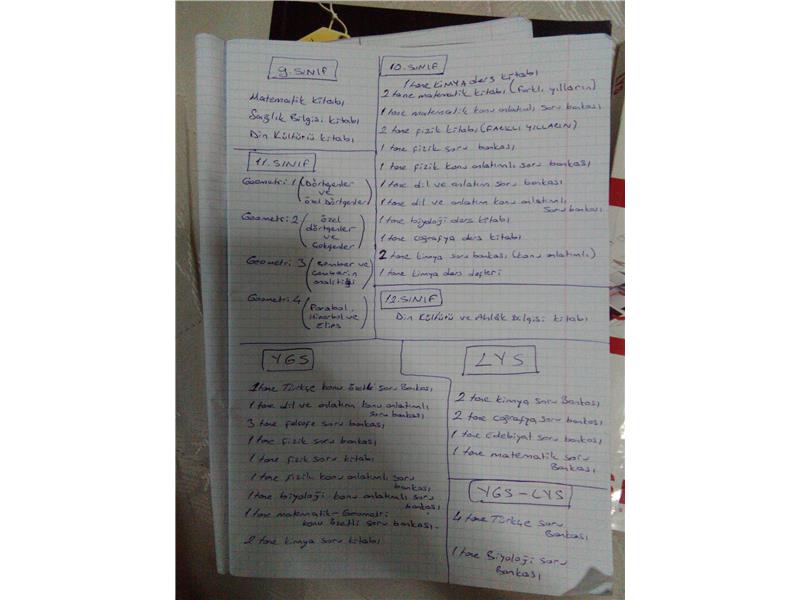 9. SINIF
Matematik kitabı
Sağlık Bilgisi kitabı
Din Kültürü kitabı
10. SINIF
1 tane KİMYA ders kitabı
2 tane matematik kitabı (farklı yılların)
1 tane matematik konu anlatımlı soru bankası
2 tane fizik kitabı (FARKLI YILLARIN)
1 tane fizik soru bankası
1 tane fizik konu anlatımlı soru bankası
1 tane dil ve anlatım soru bankası
1 tane dil ve anlatım konu anlatımlı
soru bankası
1 tane biyoloji ders kitabı
1 tane coğrafya ders kitabı
2 tane kimya soru bankası (konu anlatımlı)
1 tane kimya ders defteri
11. SINIF
Geometri 1 (Dörtgenler
ve
özel Dörtgenler)
Geometri 2 (özel
dörtgenler
ve
Çokgenler)
Geometri 3 (çember ve
çemberin
analitiği)
Geometri 4 (Parabol,
Hiperbol ve
Elips)
12. SINIF
Din Kültürü ve Ahlâk Bilgisi kitabı
YGS
1 tane Türkçe konu özetli soru Bankası
1 tane dil ve anlatım konu anlatımlı
soru bankası
3 tane felsefe soru bankası
1 tane fizik soru bankası
1 tane fizik soru kitabı
1 tane fizik konu anlatımlı soru
bankası
1 tane biyoloji konu anlatımlı soru
bankası
1 tane matematik-Geometri
konu özetli soru bankası
2 tane kimya soru kitabı
LYS
2 tane kimya soru Bankası
2 tane coğrafya soru bankası
1 tane Edebiyat soru bankası
1 tane matematik soru
Bankası
YGS-LYS
4 tane Türkçe soru
Bankası
1 tane Biyoloji soru
Bankası